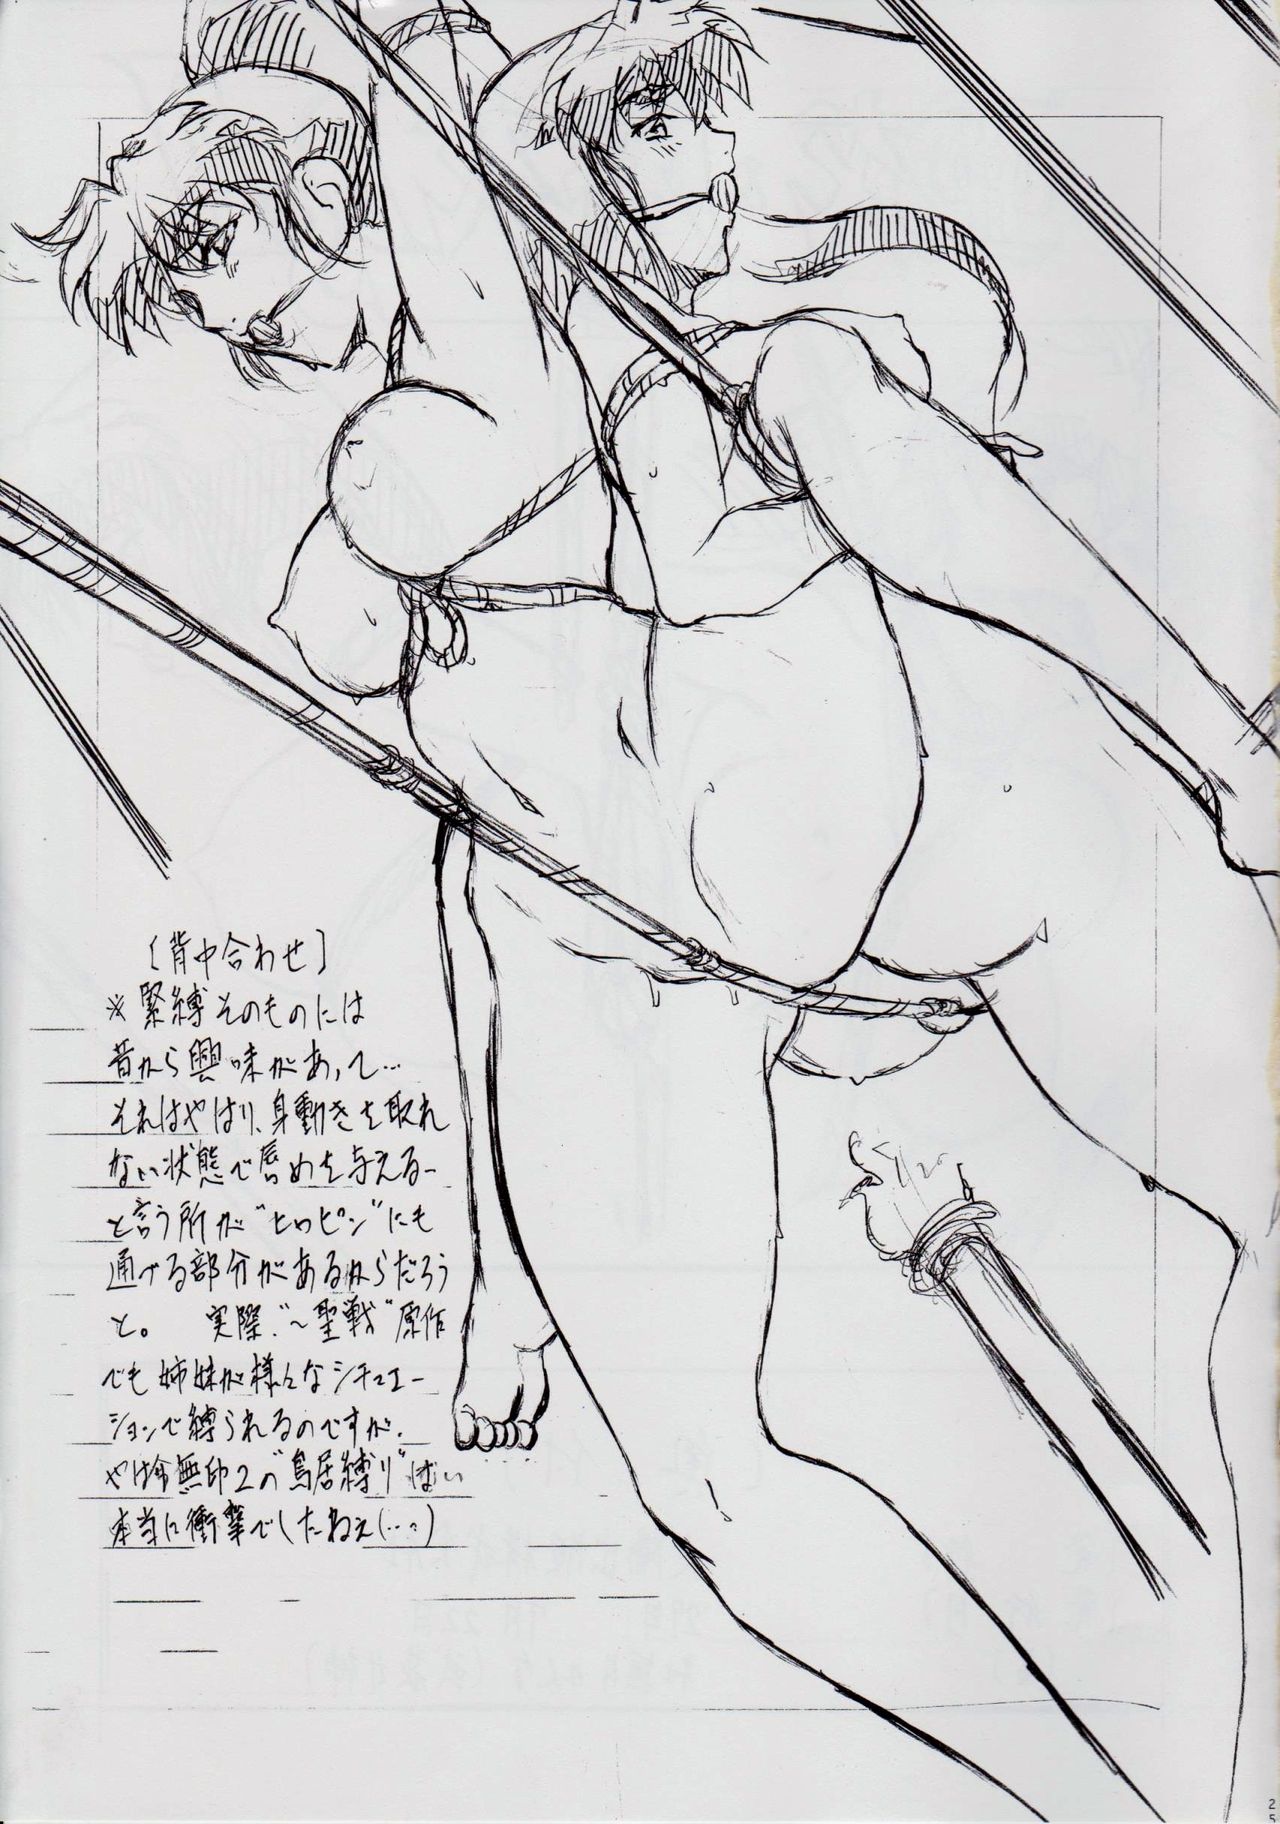 〔背中合わせ〕
※緊縛そのものには
昔から興味があって…
それはやはり、身動きを取れ
ない状態で辱めを与える-
と言う所が"ヒロピン"にも
通ずる部分があるからだろう
と。 実際、"～聖戦"原作
でも姉妹が様々なシチュエー
ションで縛られるのですが、
やは無印2の"鳥居縛り"
本当に衝撃でしたねぇ(…)
25